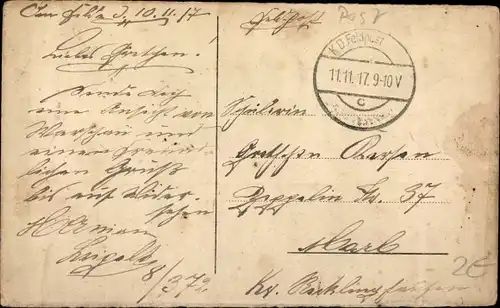 Im Felde d. 10.11.17
Liebes Gretchen.
Sende Dir
eine Ansicht von
Warschau und
einen
lichen Gruß
bis auf Wieder
sehen
Herman
8/372
Feldpost
K.D. Feldpost
11.11.17.9-10V
c
Schülerin
Gretchen
Zeppelin Str. 37
Marl
Kr. Recklinghausen
2€